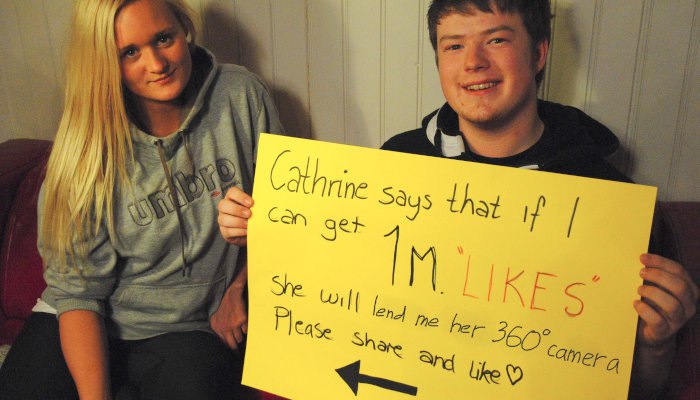 umbro
Cathrine says that if I
can get 1M. "LIKES"
She will lend me her 360° camera
Please share and like♡